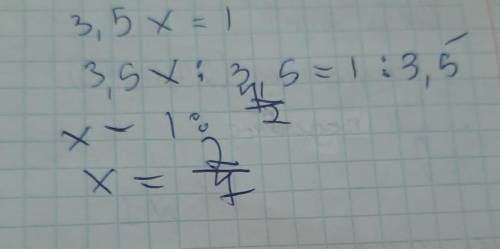 3,5 x = 1
3,5 x : 3,5 = 1 : 3,5
x - 1 : 7/2
x = 2/7